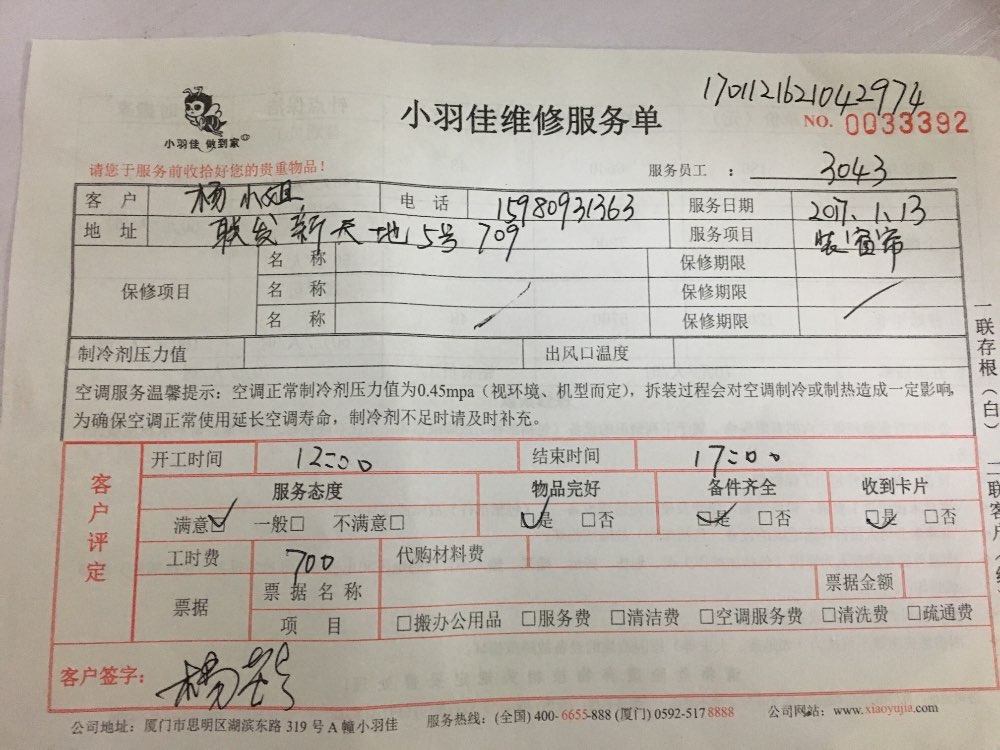 1701121621042974
小羽佳 做到家
小羽佳维修服务单
NO. 0033392
请您于服务前收拾好您的贵重物品！
服务员工 ： 3043
客户 杨小姐 电话 15980931363 服务日期 2017.1.13
地址 联发新天地5号709 服务项目 装窗帘
保修项目
名称 保修期限
名称 保修期限
名称 保修期限
制冷剂压力值 出风口温度
空调服务温馨提示：空调正常制冷剂压力值为0.45mpa（视环境、机型而定），拆装过程会对空调制冷或制热造成一定影响，
为确保空调正常使用延长空调寿命，制冷剂不足时请及时补充。
客户评定
开工时间 12:00 结束时间 17:00
服务态度 物品完好 备件齐全 收到卡片
满意☑ 一般□ 不满意□ ☑是 □否 ☑是 □否 ☑是 □否
工时费 700 代购材料费
票据 票据名称 票据金额
项目 □搬办公用品 □服务费 □清洁费 □空调服务费 □清洗费 □疏通费
客户签字： 杨
公司地址：厦门市思明区湖滨东路 319 号 A 幢小羽佳 服务热线：(全国) 400- 6655-888 (厦门) 0592-517 8888 公司网站：www.xiaoyujia.com
一联存根（白）
二联客户